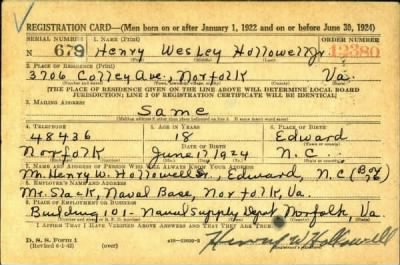 REGISTRATION CARD—(Men born on or after January 1, 1922 and on or before June 30, 1924)
SERIAL NUMBER 1. NAME (Print) ORDER NUMBER
N 679 Henry Wesley Hollowell Jr. 12380
2. PLACE OF RESIDENCE (Print)
3706 Colley Ave., Norfolk Va.
[THE PLACE OF RESIDENCE GIVEN ON THE LINE ABOVE WILL DETERMINE LOCAL BOARD
JURISDICTION; LINE 2 OF REGISTRATION CERTIFICATE WILL BE IDENTICAL]
3. MAILING ADDRESS
Same
4. TELEPHONE 5. AGE IN YEARS 6. PLACE OF BIRTH
48436 18 Edward
DATE OF BIRTH
Norfolk June 17 1924 N.C.
7. NAME AND ADDRESS OF PERSON WHO WILL ALWAYS KNOW YOUR ADDRESS
Mr. Henry W. Hollowell Sr., Edward, N.C. (Box
8. EMPLOYER'S NAME AND ADDRESS
Mr. Slack, Naval Base, Norfolk, Va.
9. PLACE OF EMPLOYMENT OR BUSINESS
Building 101- Naval Supply Depot Norfolk, Va
I AFFIRM THAT I HAVE VERIFIED ABOVE ANSWERS AND THAT THEY ARE TRUE.
D. S. S. Form 1
Henry W Hollowell